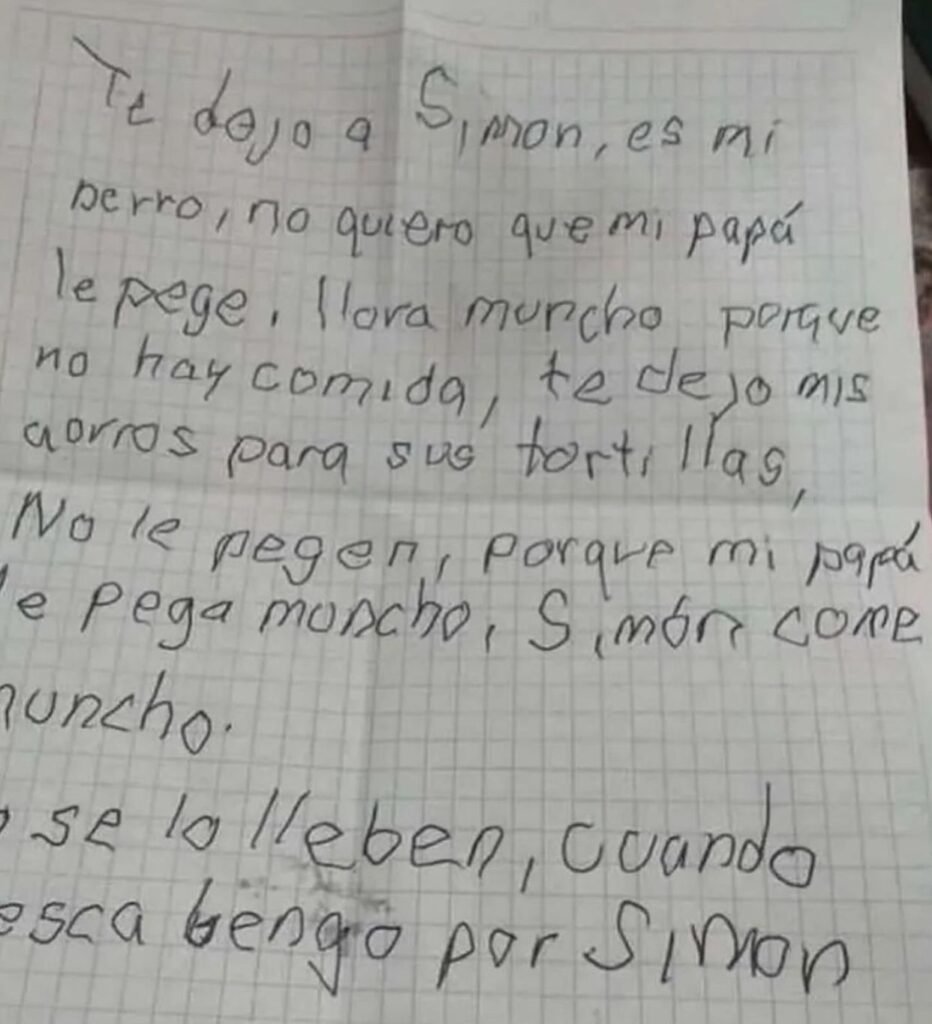 Te dejo a Simon, es mi
perro, no quiero que mi papá
le pege, llora muncho porque
no hay comida, te dejo mis
aorros para sus tortillas,
No le pegen, porque mi papá
le pega moncho, Simón come
muncho.
se lo lleben, cuando
esca bengo por Simon